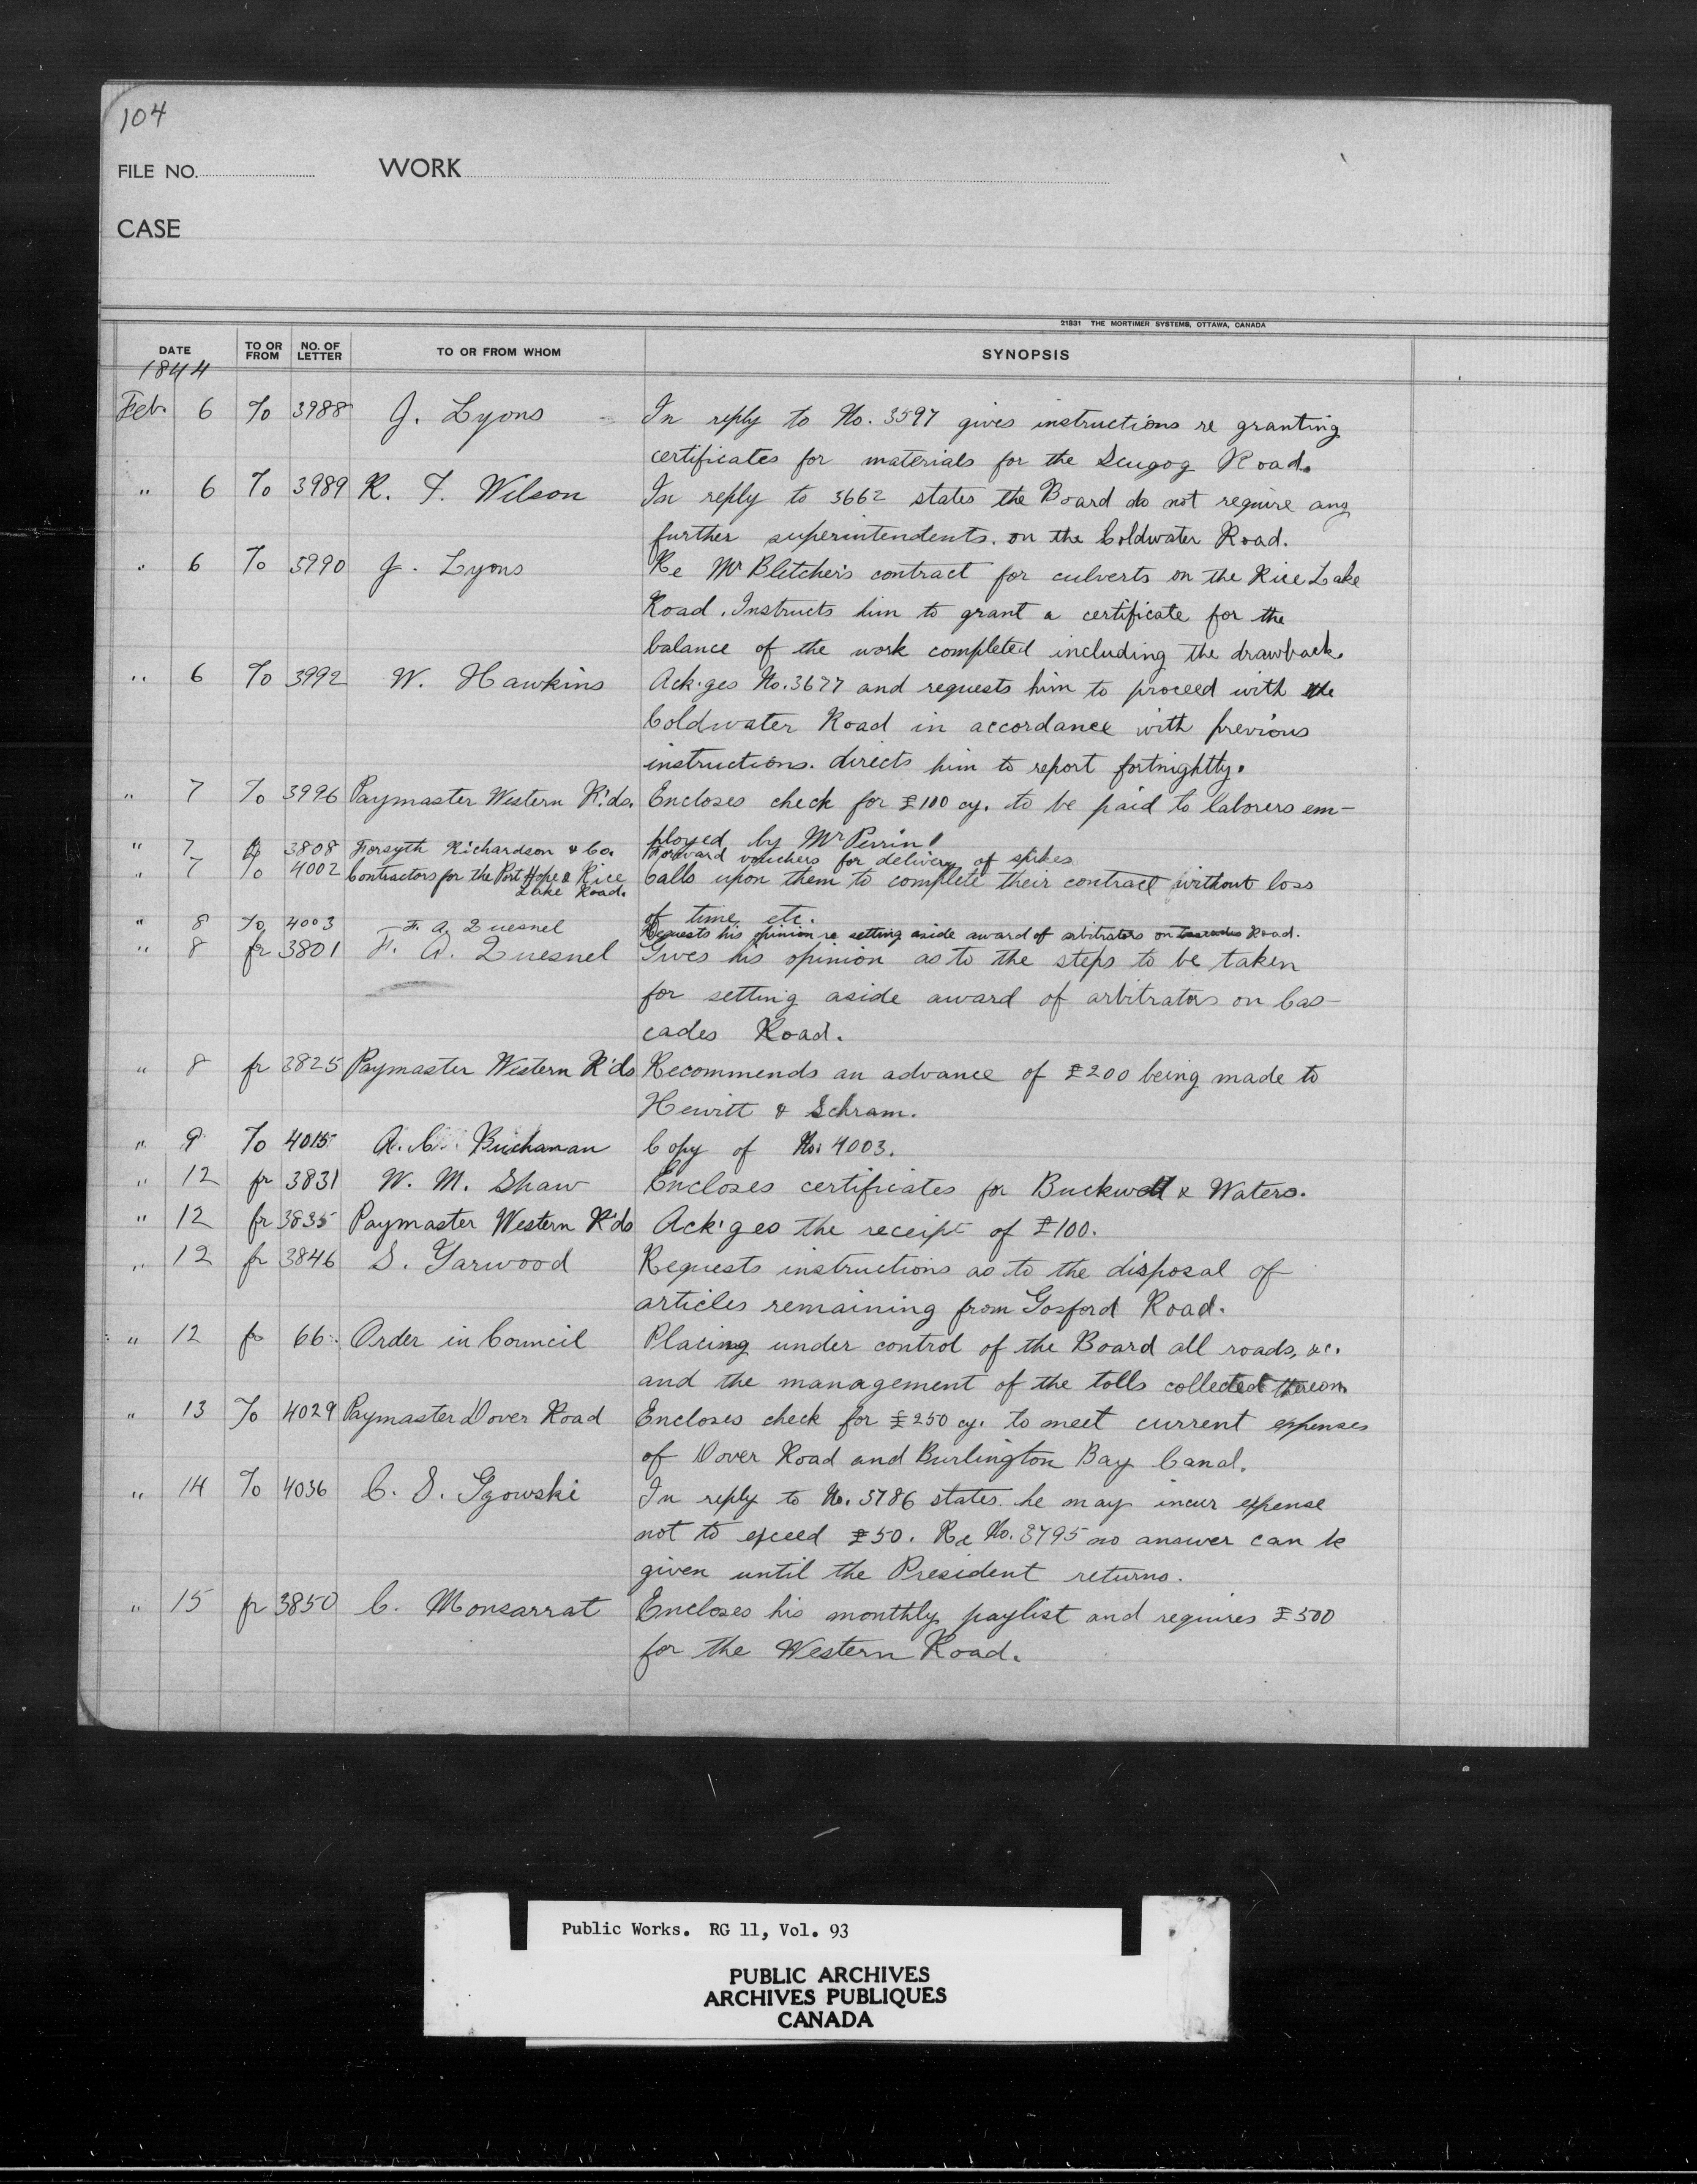 104
FILE NO. WORK
CASE
21831 THE MORTIMER SYSTEMS, OTTAWA, CANADA
DATE TO OR FROM NO. OF LETTER TO OR FROM WHOM SYNOPSIS
1844
Feb. 6 To 3988 J. Lyons In reply to No. 3597 gives instructions re granting
certificates for materials for the Scugog Road.
" 6 To 3989 R. F. Wilson In reply to 3662 states the Board do not require any
further superintendents. on the Coldwater Road.
" 6 To 3990 J. Lyons Re Mr Bletcher's contract for culverts on the Rice Lake
Road. Instructs him to grant a certificate for the
balance of the work completed including the drawback.
" 6 To 3992 W. Hawkins Ack'ges No. 3677 and requests him to proceed with the
Coldwater Road in accordance with previous
instructions. directs him to report fortnightly.
" 7 To 3996 Paymaster Western R'ds. Encloses check for £100 cy. to be paid to laborers em-
ployed by Mr Perrin.
" 7 fr 3808 Forsyth Richardson & Co. Forward vouchers for delivery of spikes
" 7 To 4002 Contractors for the Port Hope & Rice Lake Road. Calls upon them to complete their contract without loss
of time etc.
" 8 To 4003 F. A. Quesnel Requests his opinion re setting aside award of arbitrators on Cascades Road.
" 8 fr 3801 F. A. Quesnel Gives his opinion as to the steps to be taken
for setting aside award of arbitrators on Cas-
cades Road.
" 8 fr 3825 Paymaster Western R'ds Recommends an advance of £200 being made to
Hewitt & Schram.
" 9 To 4015 A. C. Buchanan Copy of No. 4003.
" 12 fr 3831 W. M. Shaw Encloses certificates for Buckwell & Waters.
" 12 fr 3835 Paymaster Western R'ds Ack'ges the receipt of £100.
" 12 fr 3846 S. Garwood Requests instructions as to the disposal of
articles remaining from Gosford Road.
" 12 fr 66 Order in Council Placing under control of the Board all roads, &c.
and the management of the tolls collected thereon
" 13 To 4029 Paymaster Dover Road Encloses check for £250 cy. to meet current expenses
of Dover Road and Burlington Bay Canal.
" 14 To 4036 C. S. Gzowski In reply to No. 3786 states he may incur expense
not to exceed £50. Re No. 3795 no answer can be
given until the President returns.
" 15 fr 3850 C. Monsarrat Encloses his monthly paylist and requires £500
for the Western Road.
Public Works. RG 11, Vol. 93
PUBLIC ARCHIVES
ARCHIVES PUBLIQUES
CANADA